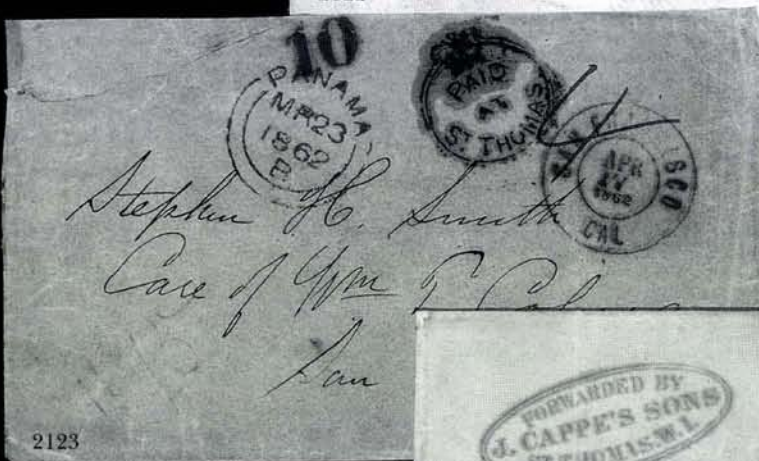 10
PANAMA
MR 23
1862
B
PAID
AT
ST THOMAS
SAN SCO
APR
1862
CAL
Stephen H. Smith
Care of Wm T
San
FORWARDED BY
J. CAPPE'S SONS
ST THOMAS. W. I.
2123